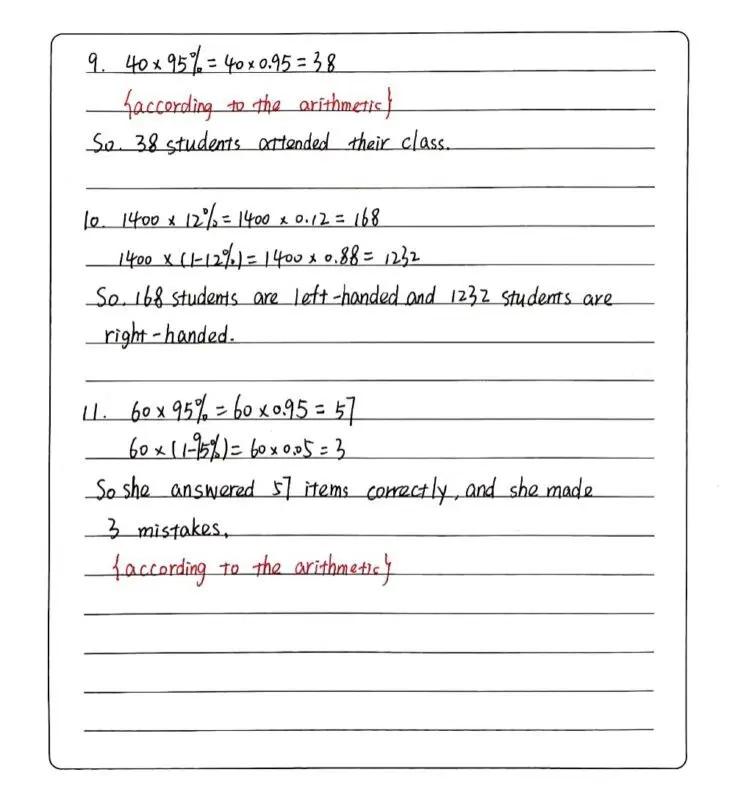 9. 40 × 95% = 40 × 0.95 = 38
{according to the arithmetic}
So. 38 students attended their class.
10. 1400 × 12% = 1400 × 0.12 = 168
1400 × (1-12%) = 1400 × 0.88 = 1232
So. 168 students are left-handed and 1232 students are
right-handed.
11. 60 × 95% = 60 × 0.95 = 57
60 × (1-95%) = 60 × 0.05 = 3
So she answered 57 items correctly, and she made
3 mistakes.
{according to the arithmetic}